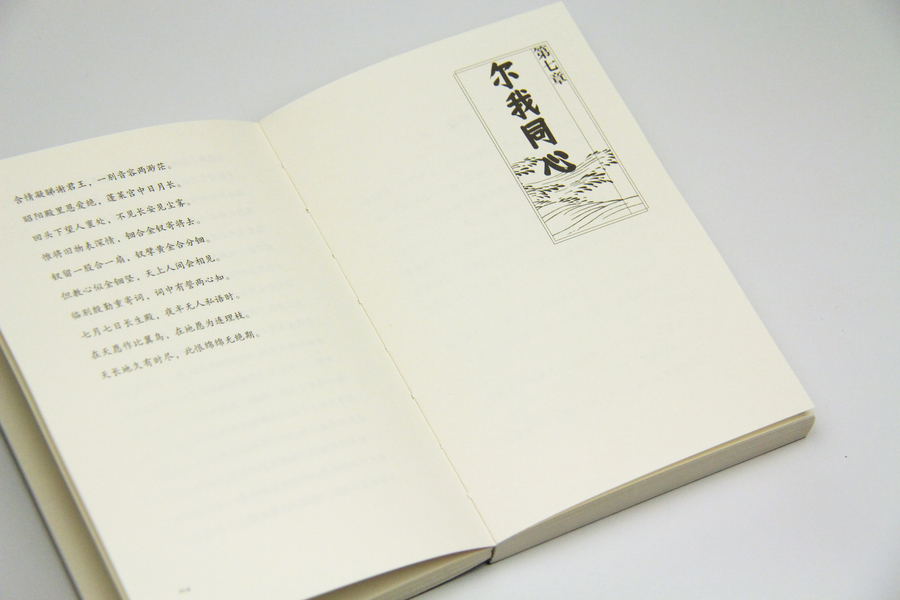 含情凝睇谢君王，一别音容两渺茫。
昭阳殿里恩爱绝，蓬莱宫中日月长。
回头下望人寰处，不见长安见尘雾。
惟将旧物表深情，钿合金钗寄将去。
钗留一股合一扇，钗擘黄金合分钿。
但教心似金钿坚，天上人间会相见。
临别殷勤重寄词，词中有誓两心知。
七月七日长生殿，夜半无人私语时。
在天愿作比翼鸟，在地愿为连理枝。
天长地久有时尽，此恨绵绵无绝期。
第七章
尔我同心